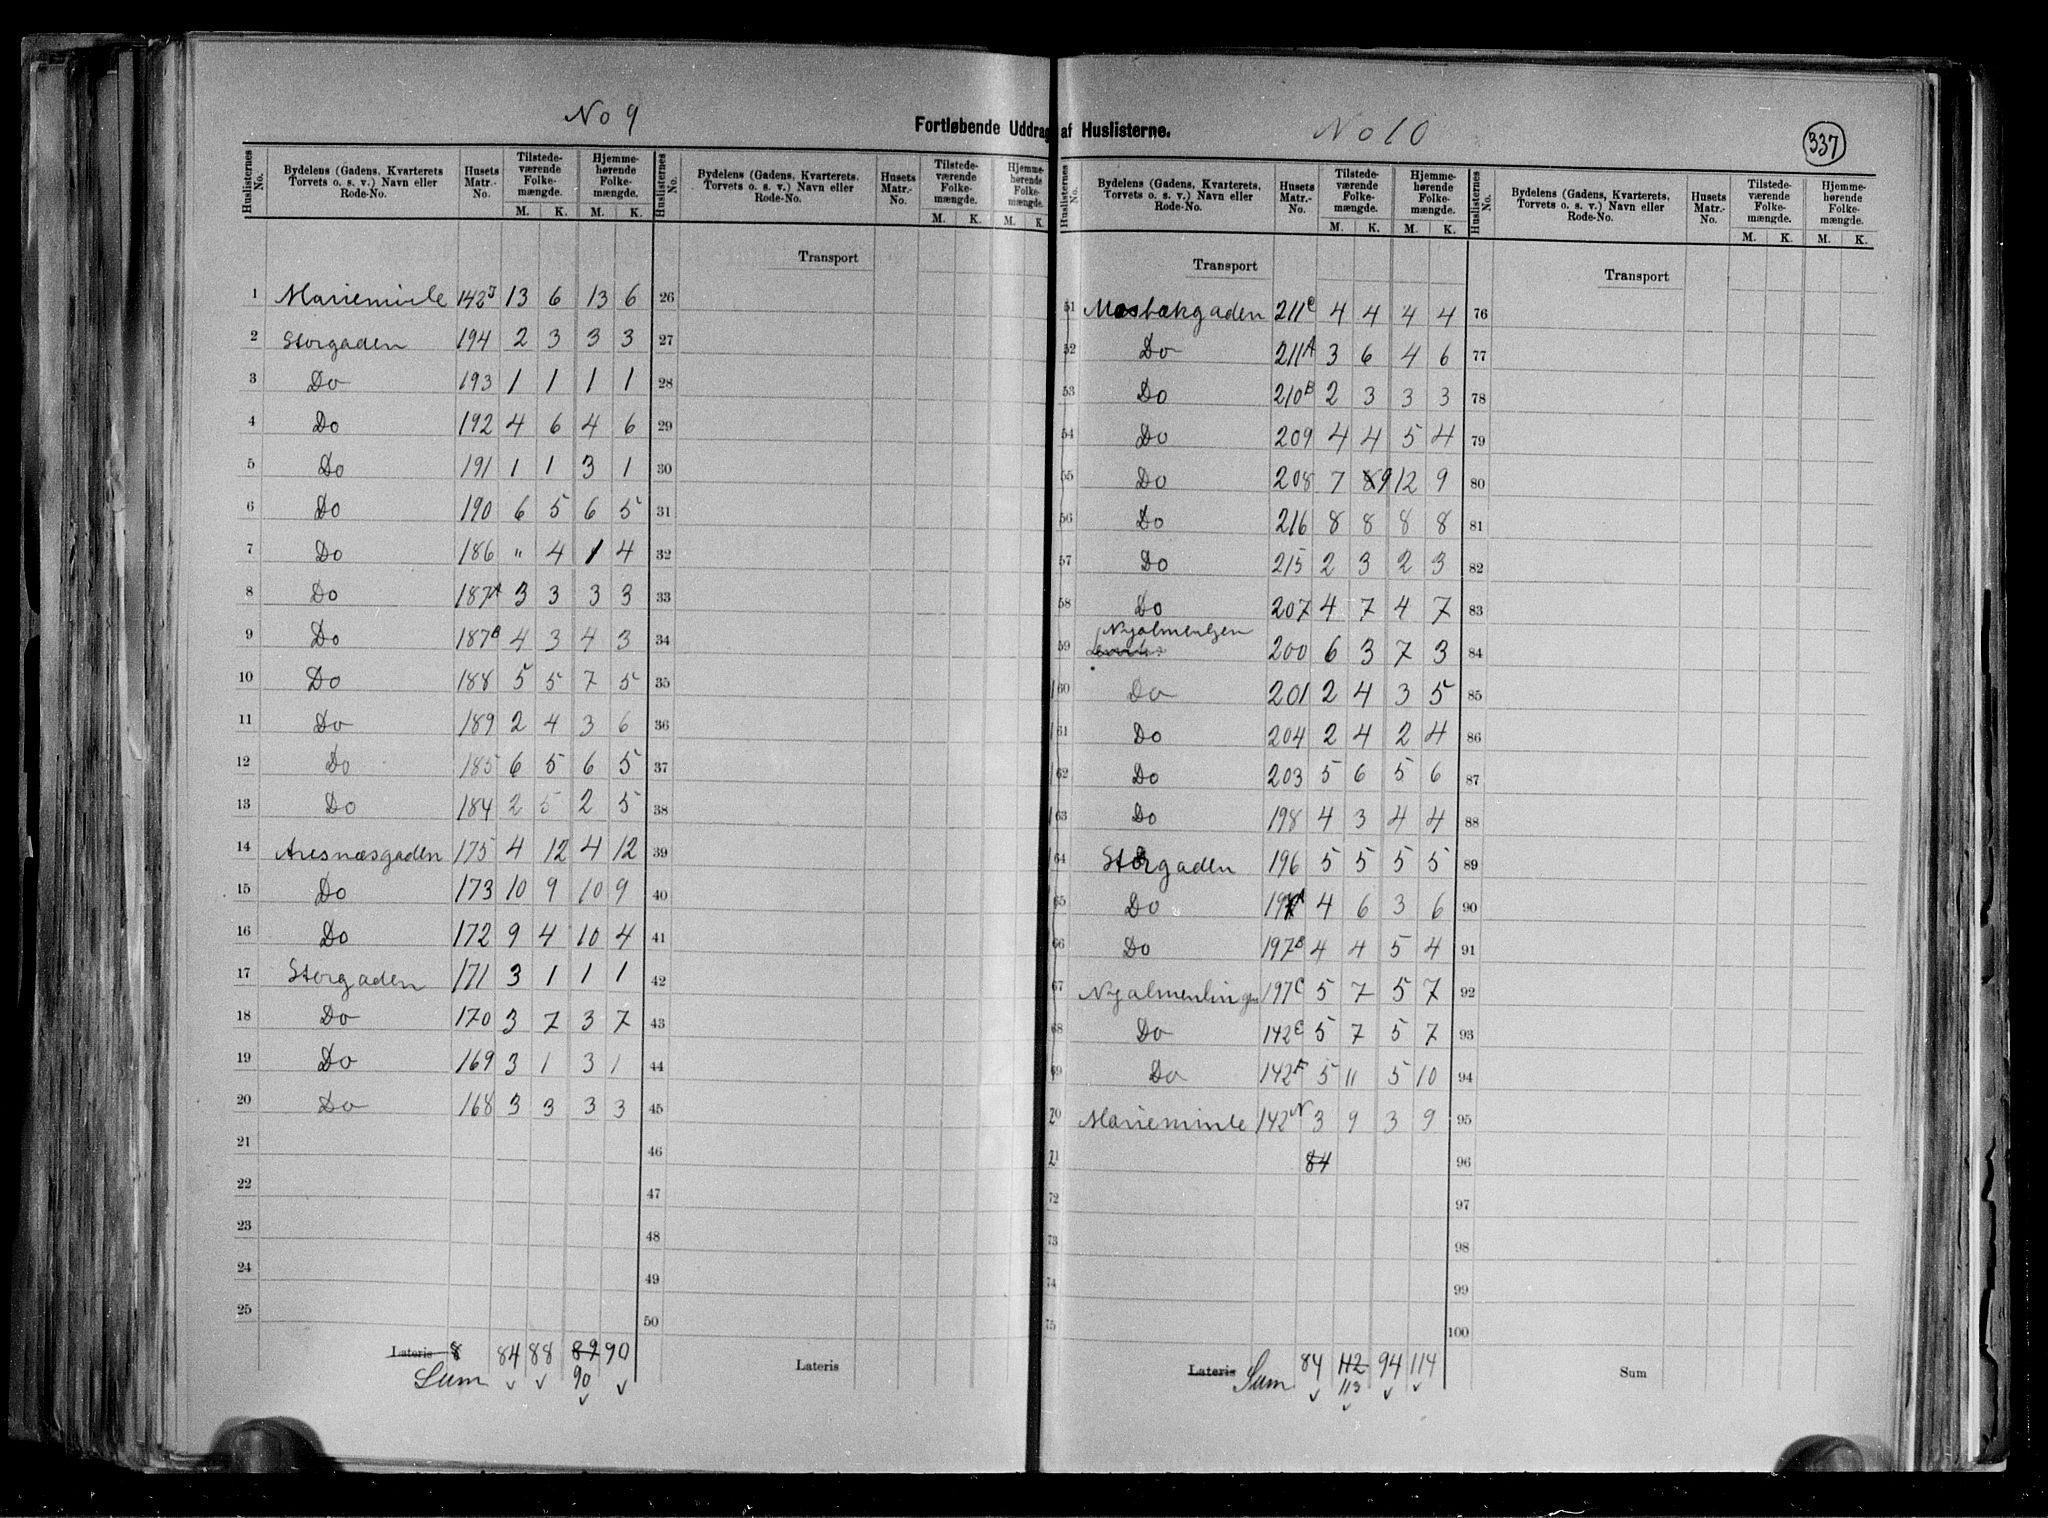 No 9
Fortløbende Uddrag af Huslisterne.
No 10
337
Huslisternes No. Bydelens (Gadens, Kvarterets Torvets o. s. v.) Navn eller Rode-No. Husets Matr.-No. Tilstedeværende Folkemængde. M. K. Hjemmehørende Folkemængde. M. K.
Huslisternes No. Bydelens (Gadens, Kvarterets, Torvets o. s. v.) Navn eller Rode-No. Husets Matr.-No. Tilstedeværende Folkemængde. M. K. Hjemmehørende Folkemængde. M. K.
Transport
1 Marieminde 142J 13 6 13 6 26
2 Storgaden 194 2 3 3 3 27
3 Do 193 1 1 1 1 28
4 Do 192 4 6 4 6 29
5 Do 191 1 1 3 1 30
6 Do 190 6 5 6 5 31
7 Do 186 " 4 1 4 32
8 Do 187A 3 3 3 3 33
9 Do 187B 4 3 4 3 34
10 Do 188 5 5 7 5 35
11 Do 189 2 4 3 6 36
12 Do 185 6 5 6 5 37
13 Do 184 2 5 2 5 38
14 Aresnæsgaden 175 4 12 4 12 39
15 Do 173 10 9 10 9 40
16 Do 172 9 4 10 4 41
17 Storgaden 171 3 1 1 1 42
18 Do 170 3 7 3 7 43
19 Do 169 3 1 3 1 44
20 Do 168 3 3 3 3 45
21 46
22 47
23 48
24 49
25 50
Lateris 8 84 88 89 90 Lateris
Sum 90
Huslisternes No. Bydelens (Gadens, Kvarterets, Torvets o. s. v.) Navn eller Rode-No. Husets Matr.-No. Tilstedeværende Folkemængde. M. K. Hjemmehørende Folkemængde. M. K.
Huslisternes No. Bydelens (Gadens, Kvarterets, Torvets o. s. v.) Navn eller Rode-No. Husets Matr.-No. Tilstedeværende Folkemængde. M. K. Hjemmehørende Folkemængde. M. K.
Transport Transport
51 Mosbækgaden 211C 4 4 4 4 76
52 Do 211A 3 6 4 6 77
53 Do 210B 2 3 3 3 78
54 Do 209 4 4 5 4 79
55 Do 208 7 8 9 12 9 80
56 Do 216 8 8 8 8 81
57 Do 215 2 3 2 3 82
58 Do 207 4 7 4 7 83
59 200 6 3 7 3 84
60 Do 201 2 4 3 5 85
61 Do 204 2 4 2 4 86
62 Do 203 5 6 5 6 87
63 Do 198 4 3 4 4 88
64 Storgaden 196 5 5 5 5 89
65 Do 197A 4 6 3 6 90
66 Do 197B 4 4 5 4 91
67 197C 5 7 5 7 92
68 Do 142E 5 7 5 7 93
69 Do 142F 5 11 5 10 94
70 Marieminde 142N 3 9 3 9 95
71 84 96
72 97
73 98
74 99
75 100
Lateris Sum 84 112 94 114 Sum
113